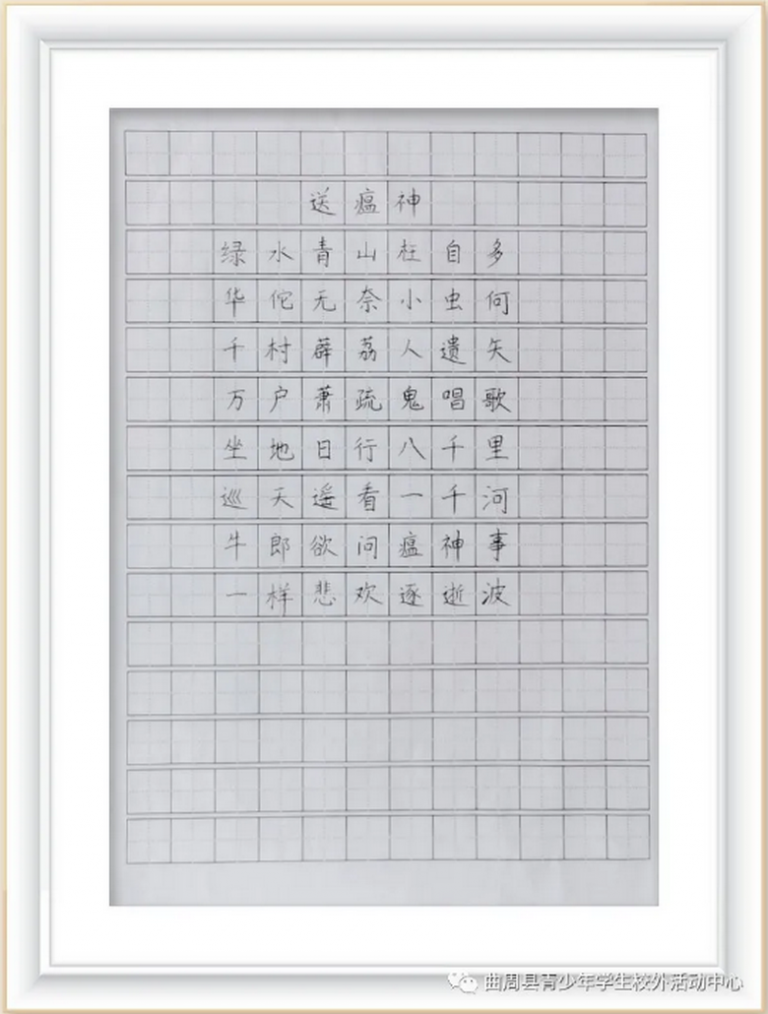 送瘟神
绿水青山枉自多
华佗无奈小虫何
千村薜荔人遗矢
万户萧疏鬼唱歌
坐地日行八千里
巡天遥看一千河
牛郎欲问瘟神事
一样悲欢逐逝波
曲周县青少年学生校外活动中心